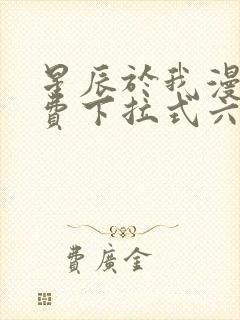 星辰於我漫
費下拉式六
費廣金